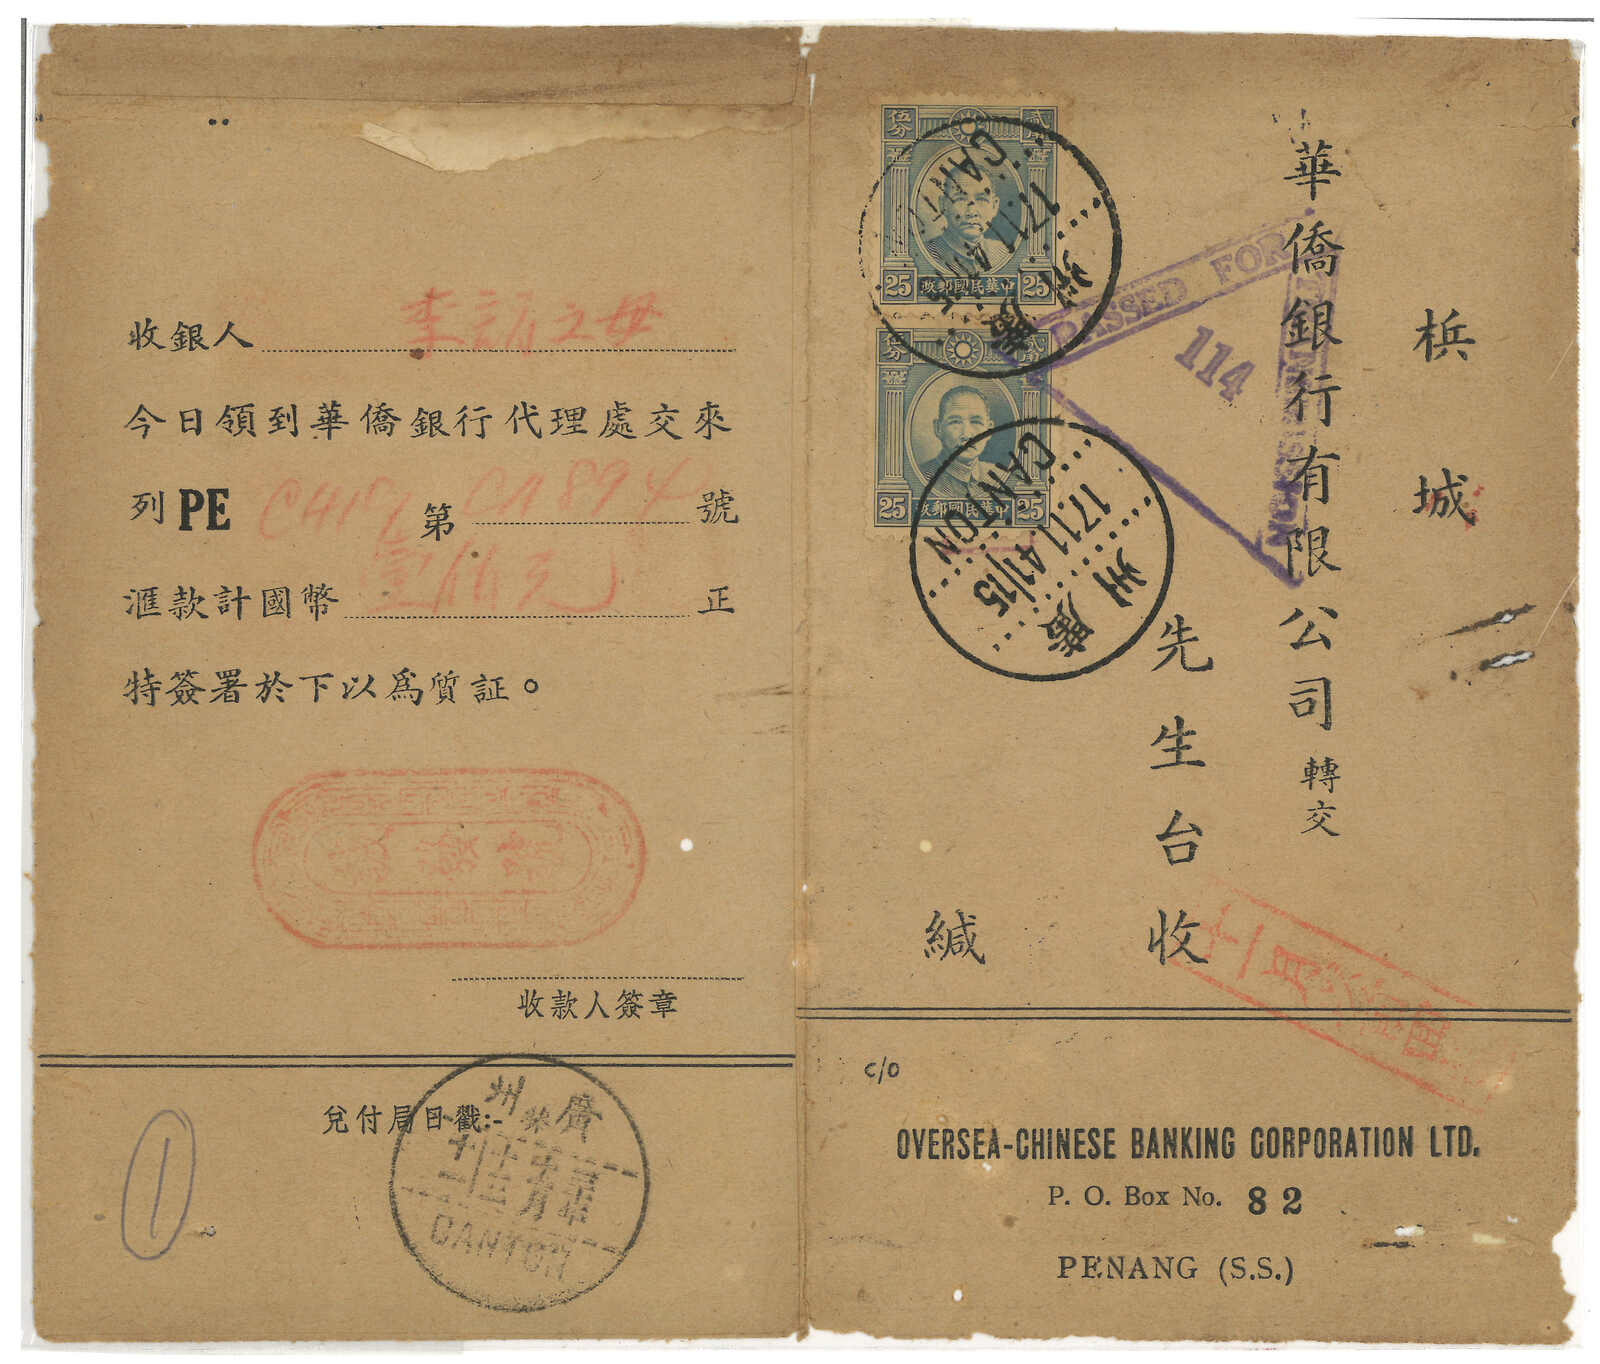 收銀人 李請之母
今日領到華僑銀行代理處交來
列 PE 第 號
滙款計國幣 壹佰元 正
特簽署於下以爲質証。
收款人簽章
兌付局日戳:-
廣州
CANTON
1
貳角 伍分
25 中華民國郵政 25
貳角 伍分
25 中華民國郵政 25
廣州
17.11.41
CANTON
廣州
17.11.41/15
CANTON
PASSED FOR
TRANSMISSION
114
梹城
華僑銀行有限公司轉交
先生台收
緘
c/o
OVERSEA-CHINESE BANKING CORPORATION LTD.
P. O. Box No. 82
PENANG (S.S.)